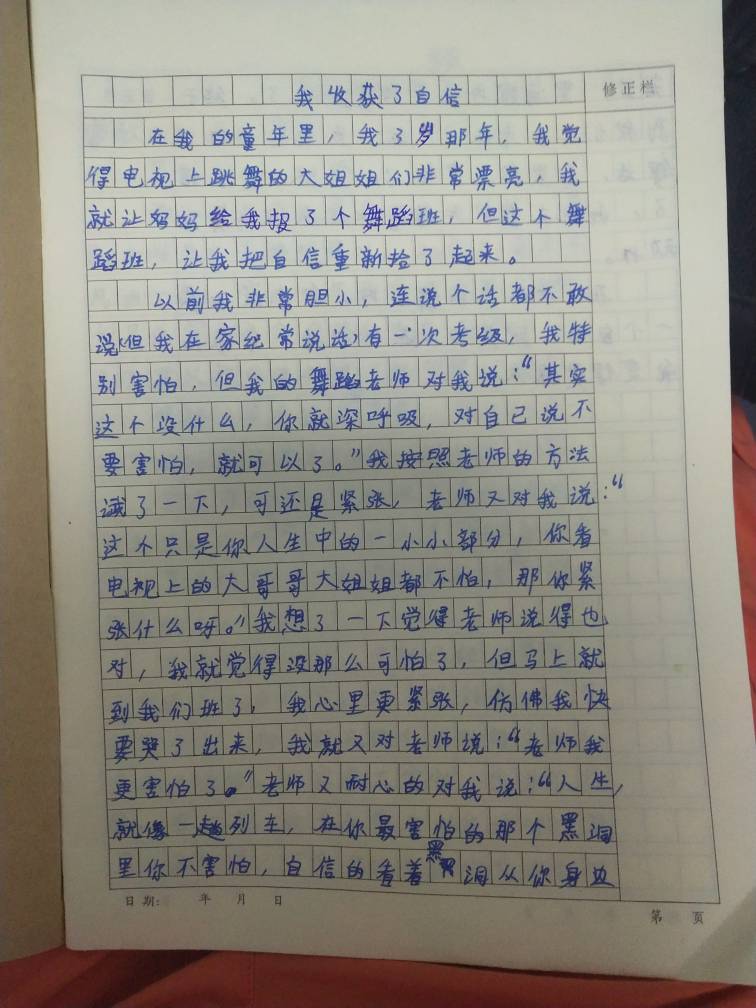 我收获了自信
修正栏
在我的童年里，我3岁那年，我觉
得电视上跳舞的大姐姐们非常漂亮，我
就让妈妈给我报了个舞蹈班，但这个舞
蹈班，让我把自信重新拾了起来。
以前我非常胆小，连说个话都不敢
说（但我在家经常说话）有一次考级，我特
别害怕，但我的舞蹈老师对我说：“其实
这个没什么，你就深呼吸，对自己说不
要害怕，就可以了。”我按照老师的方法
试了一下，可还是紧张，老师又对我说：“
这个只是你人生中的一小小部分，你看
电视上的大哥哥大姐姐都不怕，那你紧
张什么呀。”我想了一下觉得老师说得也
对，我就觉得没那么可怕了，但马上就
到我们班了，我心里更紧张，仿佛我快
要哭了出来，我就又对老师说：“老师我
更害怕了。”老师又耐心的对我说：“人生，
就像一趟列车，在你最害怕的那个黑洞
里你不害怕，自信的看着黑洞从你身边
日期： 年 月 日
第 页